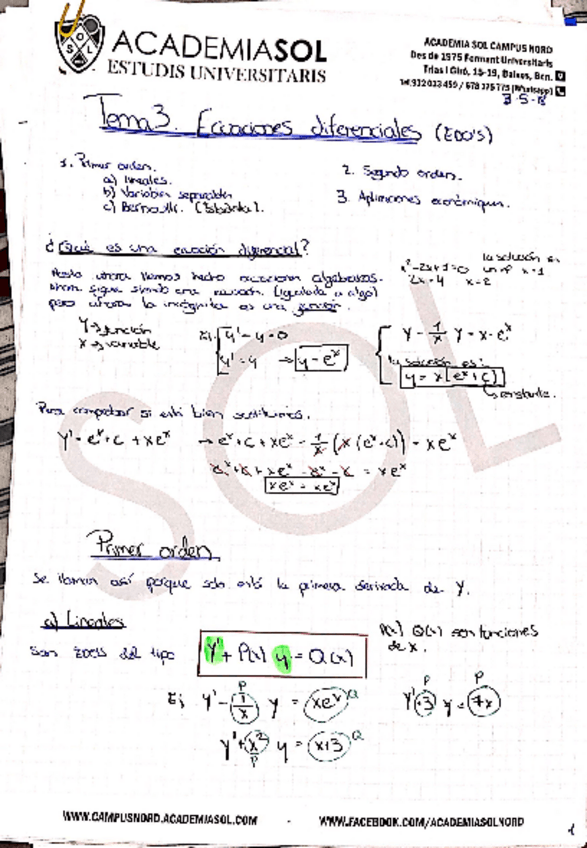 ACADEMIASOL
ESTUDIS UNIVERSITARIS
ACADEMIA SOL CAMPUS NORD
Des de 1975 Formant Universitaris
Trias i Giró, 15-19, Baixos, Bcn.
Tel. 932 033 459 / 678 375 775 (Whatsapp)
3-5-18
Tema 3. Ecuaciones diferenciales (EDO's)
1. Primer orden.
a) lineales.
b) Variables separables
c) Bernoulli.
2. Segundo orden.
3. Aplicaciones económiques.
¿Qué es una ecuación diferencial?
Hasta ahora hemos hecho ecuaciones algebraicas.
Ahora sigue siendo una ecuación (igualdad a algo)
pero ahora la incógnita es una función.
x²-2x+1=0
la solución es
un nº x=1
2x=4 x=2
y → función
x → variable
Ej.
y' - y = 0
y' = y → y = eˣ
y - 1/x y = x·eˣ
la solución es:
y = x(eˣ+c)
constante.
Para comprobar si está bien sustituimos.
y' = eˣ + c + xeˣ → eˣ + c + xeˣ - 1/x (x(eˣ+c)) = xeˣ
eˣ + c + xeˣ - eˣ - c = xeˣ
xeˣ = xeˣ
SOL
Primer orden
Se llaman así porque solo está la primera derivada de y.
a) Lineales
Son EDOS del tipo
y' + P(x) y = Q(x)
P(x) Q(x) son funciones
de x.
Ej y' - 1/x y = xeˣ
P
Q
y' + 3 y = 7x
P
P
y' + x² y = x+3
P
Q
WWW.CAMPUSNORD.ACADEMIASOL.COM - WWW.FACEBOOK.COM/ACADEMIASOLNORD
1